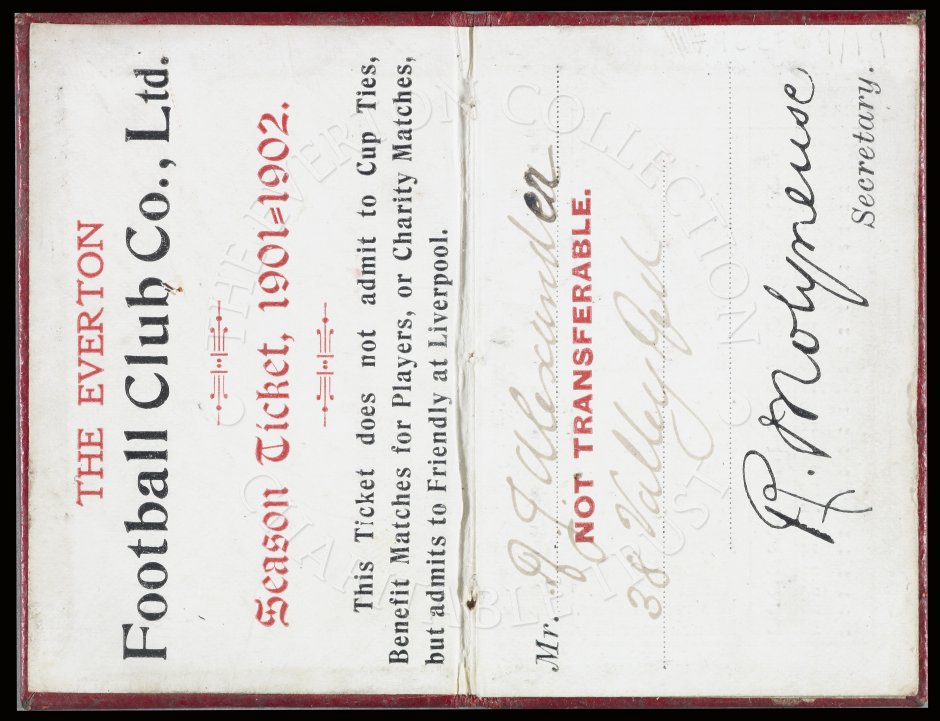 THE EVERTON
Football Club Co., Ltd.
Season Ticket, 1901=1902.
This Ticket does not admit to Cup Ties,
Benefit Matches for Players, or Charity Matches,
but admits to Friendly at Liverpool.
Mr. J Alexander
NOT TRANSFERABLE.
38 Valley Rd
R. Molyneux
Secretary.
THE EVERTON COLLECTION
CHARITABLE TRUST